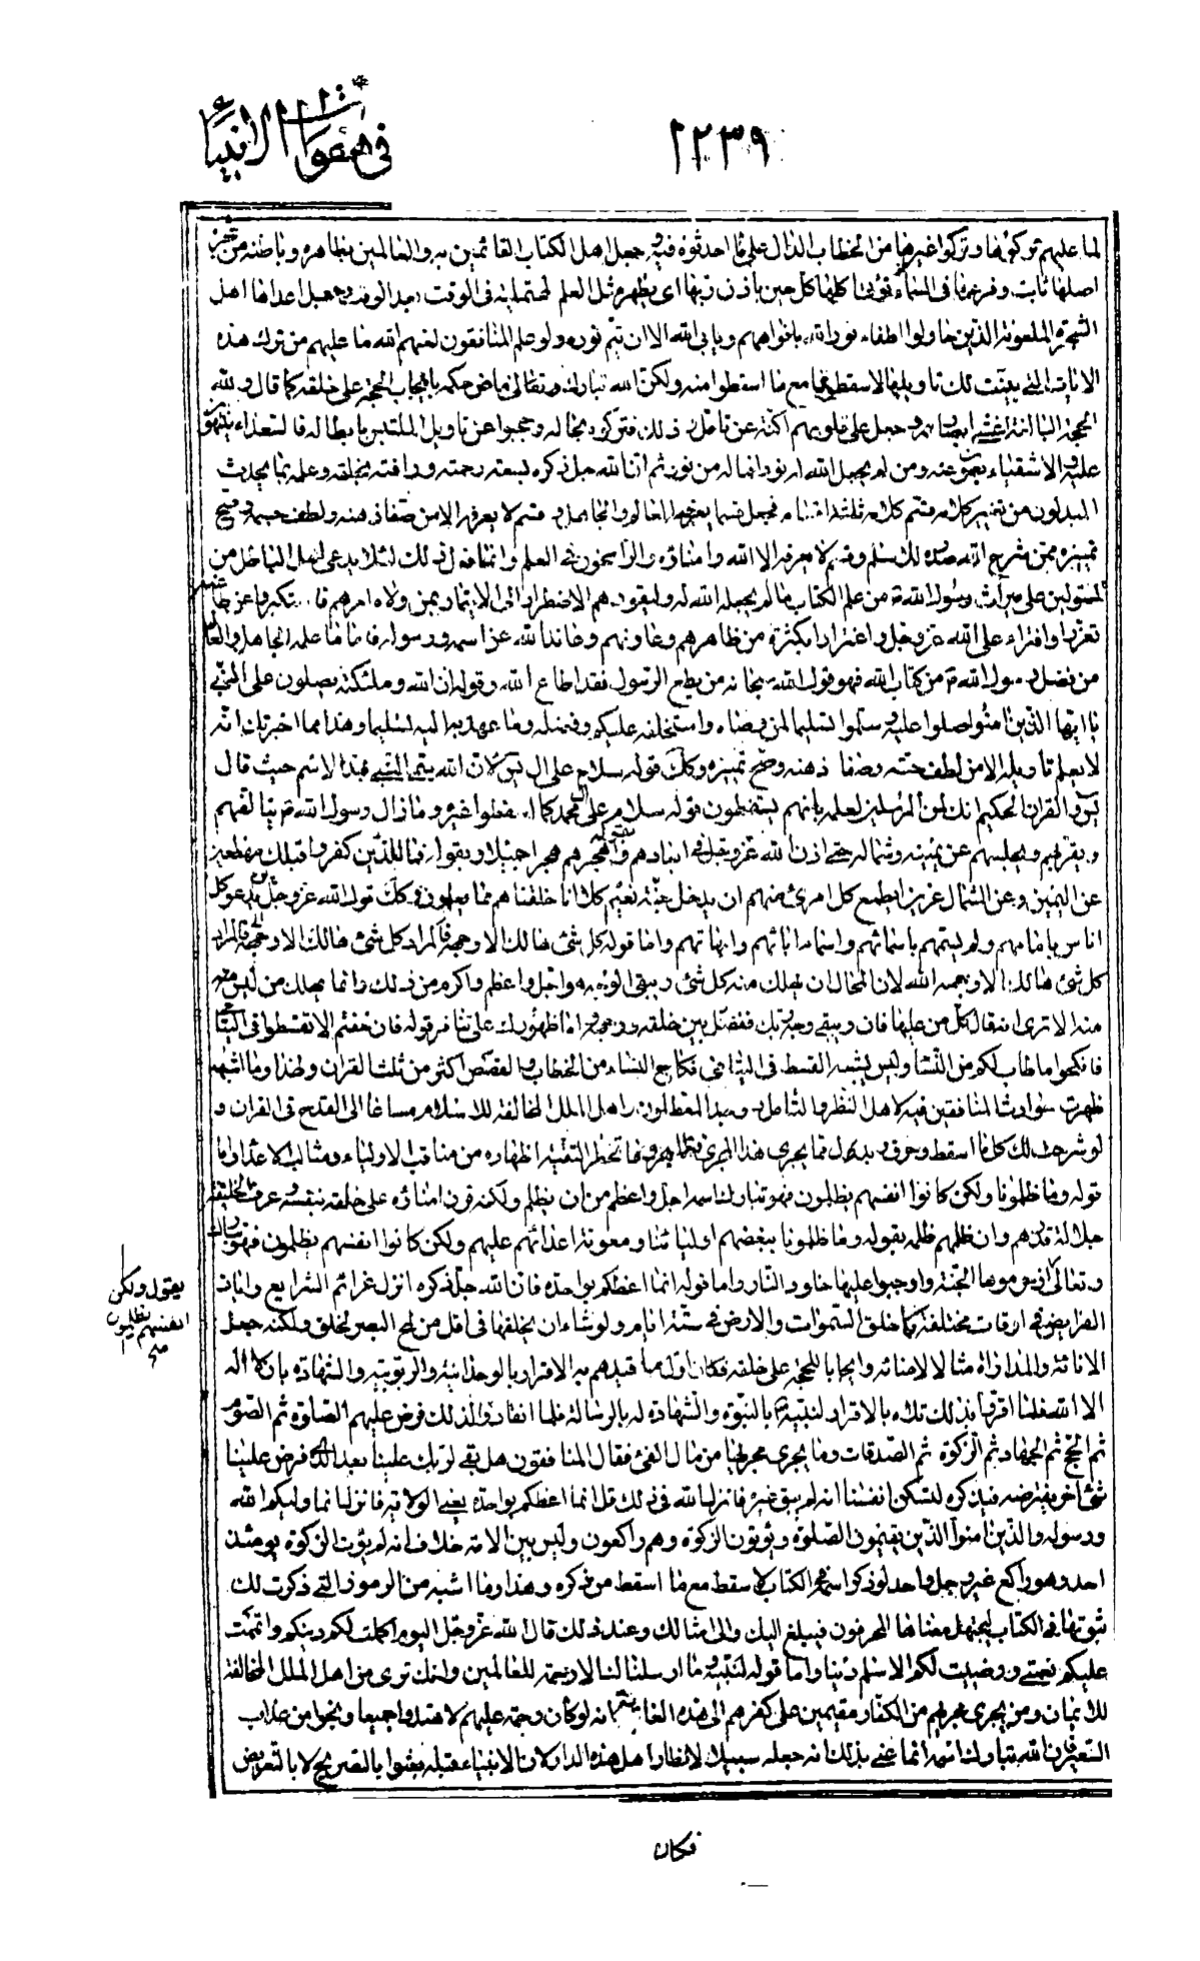 في هفوات الانبياء
١٢٣٩
لما عليهم تركوها وتركوا غيرها من الخطاب الدال على ما احدثوه فيه وجعل اهل الكتاب القائمين به والعالمين بظاهره وباطنه من شجرة
اصلها ثابت وفرعها في السماء تؤتي اكلها كل حين باذن ربها اي يظهر مثل العلم لمحتمليه في الوقت بعد الوقت وجعل اعداها اهل
الشجرة الملعونة الذين حاولوا اطفاء نور الله بافواههم ويابى الله الا ان يتم نوره ولو علم المنافقون لعنهم الله ما عليهم من ترك هذه
الايات التي بينت لك تاويلها لاسقطوها مع ما اسقطوا منه ولكن الله تبارك وتعالى ماض حكمه بايجاب الحجة على خلقه كما قال ولله
الحجة البالغة اغشى ابصارهم وجعل على قلوبهم اكنة عن تامل ذلك فتركوه بحاله وحجبوا عن تاويل الملتبس بابطاله فالسعداء ينتبهون
عليه والاشقياء يعمون عنه ومن لم يجعل الله له نورا فما له من نور ثم ان الله جل ذكره لسعة رحمته ورافته بخلقه وعلمه بما يحدثه
المبدلون من تغيير كلامه قسم كلامه ثلثة اقسام فجعل قسما يعرفه العالم والجاهل وقسم لا يعرفه الا من صفا ذهنه ولطف حسه وصح
تميزه ممن شرح الله صدره للاسلام وقسم لا يعرفه الا الله وامناؤه والراسخون في العلم وانما فعل ذلك لئلا يدعى اهل الباطل من
المستولين على ميراث رسول الله ص من علم الكتاب ما لم يجعله الله له وليقودهم الاضطرار الى الايتمار بمن ولاه امرهم فاستكبروا عن طاعته
تعززا وافتراء على الله عز وجل واغترارا بكثرة من ظاهرهم وعاونهم وعاند الله عز اسمه ورسوله فاما ما علمه الجاهل والعالم
من فضل رسول الله ص من كتاب الله فهو قول الله سبحانه من يطع الرسول فقد اطاع الله وقوله ان الله وملئكته يصلون على النبي
يا ايها الذين امنوا صلوا عليه وسلموا تسليما لمن وصاه واستخلفه عليكم وفضله وما عهد به اليه تسليما وهذا مما اخبرتك انه
لا يعلم تاويله الا من لطف حسه وصفا ذهنه وصح تميزه وكذلك قوله سلام على ال يس لان الله سمى النبي بهذا الاسم حيث قال
يس والقران الحكيم انك لمن المرسلين لعلمه بانهم يسقطون قوله سلام على ال محمد كما اسقطوا غيره وما زال رسول الله ص يتالفهم
ويقربهم ويجلسهم عن يمينه وشماله حتى اذن الله عز وجل في ابعادهم بقوله واهجرهم هجرا جميلا وبقوله فما للذين كفروا قبلك مهطعين
عن اليمين وعن الشمال عزين ايطمع كل امرئ منهم ان يدخل جنة نعيم كلا انا خلقناهم مما يعلمون وكذلك قول الله عز وجل يوم ندعو كل
اناس بامامهم ولم يسمهم باسمائهم واسماء ابائهم وامهاتهم واما قوله كل شئ هالك الا وجهه فالمراد كل شئ هالك الا وجهه فالمراد
كل شئ هالك الا وجهه الله لان المحال ان يهلك منه كل شئ ويبقى الوجه هو اجل واعظم واكرم من ذلك وانما يهلك من ليس منه
منه الا ترى انه قال كل من عليها فان ويبقى وجه ربك ففصل بين خلقه ووجهه واما ظهورك على تناكر قوله فان خفتم الا تقسطوا في اليتامى
فانكحوا ما طاب لكم من النسا وليس يشبه القسط في اليتامى نكاح النساء من الخطاب والقصص اكثر من ثلث القران وهذا وما اشبهه
ظهرت حوادث المنافقين فيه لاهل النظر والتامل ووجد المعطلون واهل الملل المخالفة للاسلام مساغا الى القدح في القران و
لو شرحت لك كلما اسقط وحرف وبدل مما يجري هذا المجرى لطال وظهر ما تحظر التقية اظهاره من مناقب الاولياء ومثالب الاعداء واما
قوله وما ظلمونا ولكن كانوا انفسهم يظلمون فهو تبارك اسمه اجل واعظم من ان يظلم ولكنه قرن امناؤه على خلقه بنفسه وعرف الخليقة
جلالة قدرهم وان ظلمهم ظلمه بقوله وما ظلمونا ببغضهم اوليائنا ومعونة اعدائهم عليهم ولكن كانوا انفسهم يظلمون فهو تبارك
وتعالى اذ حرموها الجنة واوجبوا عليها خلود النار واما قوله انما اعظكم بواحدة فان الله جل ذكره انزل عزائم الشرايع وايات
الفرايض في اوقات مختلفة كما خلق السموات والارض في ستة ايام ولو شاء ان يخلقها في اقل من لمح البصر لخلق ولكنه جعل
الاناءة والمداراة مثالا لامنائه وايجابا للحجة على خلقه فكان اول ما قيدهم به الاقرار بالوحدانية والربوبية والشهادة بان لا اله
الا الله فلما اقروا بذلك تلاه بالاقرار لنبيه بالنبوة والشهادة له بالرسالة فلما انقادوا لذلك فرض عليهم الصلوة ثم الصوم
ثم الحج ثم الجهاد ثم الزكوة ثم الصدقات وما يجري مجراها من مال الفئ فقال المنافقون هل بقي لربك علينا بعد الذي فرض علينا
شئ اخر يفترضه فيذكره لتسكن انفسنا انه لم يبق غيره فانزل الله في ذلك قل انما اعظكم بواحدة يعني الولاية فانزل انما وليكم الله
ورسوله والذين امنوا الذين يقيمون الصلوة ويؤتون الزكوة وهم راكعون وليس بين الامة خلاف انه لم يؤت الزكوة يومئذ
احد وهو راكع غير رجل واحد لو ذكر اسمه في الكتاب لاسقط مع ما اسقط من ذكره وهذا وما اشبه من الرموز التي ذكرت لك
ثبوتها في الكتاب ليجهل معناها المحرفون فيبلغ اليك والى امثالك وعند ذلك قال الله عز وجل اليوم اكملت لكم دينكم واتممت
عليكم نعمتي ورضيت لكم الاسلام دينا واما قوله لنبيه وما ارسلناك الا رحمة للعالمين وانك ترى من اهل الملل المخالفة
للايمان ومن يجري مجراهم من الكفار مقيمين على كفرهم الى هذه الغاية وانه لو كان رحمة عليهم لاهتدوا جميعا ونجوا من عذاب
السعير فان الله تبارك اسمه انما عنى بذلك انه جعله سبيلا لانظار اهل هذه الدار لان الانبياء قبله بعثوا بالتصريح لا بالتعريض
يقول ولكن
انفسهم يظلمون
فكان